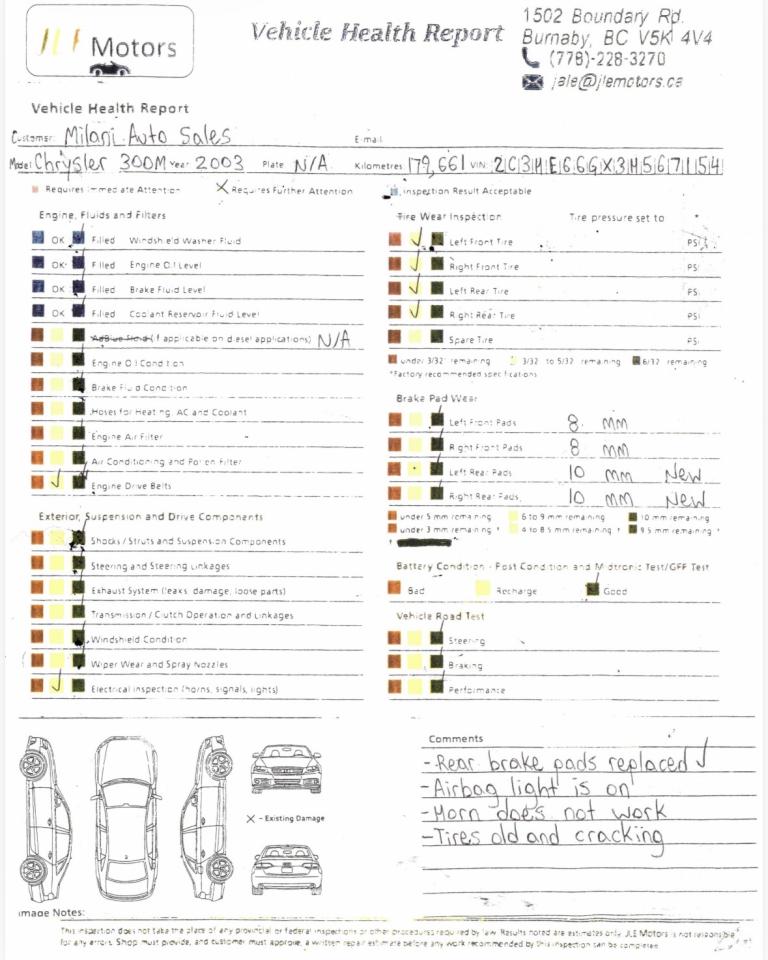 JLE Motors
Vehicle Health Report
1502 Boundary Rd.
Burnaby, BC V5K 4V4
(778)-228-3270
jale@jlemotors.ca
Vehicle Health Report
Customer: Milani Auto Sales E-mail
Model Chrysler 300M Year 2003 Plate N/A Kilometres 179,661 VIN: 2C3HE66GX3H567154
Requires Immediate Attention X Requires Further Attention Inspection Result Acceptable
Engine, Fluids and Filters
OK Filled Windshield Washer Fluid
OK Filled Engine Oil Level
OK Filled Brake Fluid Level
OK Filled Coolant Reservoir Fluid Level
AdBlue Fluid (if applicable on diesel applications) N/A
Engine Oil Condition
Brake Fluid Condition
Hoses for Heating, AC and Coolant
Engine Air Filter
Air Conditioning and Pollen Filter
Engine Drive Belts
Exterior, Suspension and Drive Components
Shocks / Struts and Suspension Components
Steering and Steering Linkages
Exhaust System (leaks, damage, loose parts)
Transmission / Clutch Operation and Linkages
Windshield Condition
Wiper Wear and Spray Nozzles
Electrical inspection (horns, signals, lights)
Tire Wear Inspection Tire pressure set to *
Left Front Tire PSI
Right Front Tire PSI
Left Rear Tire PSI
Right Rear Tire PSI
Spare Tire PSI
under 3/32 remaining 3/32 to 5/32 remaining 6/32 remaining
*Factory recommended specifications
Brake Pad Wear
Left Front Pads 8 mm
Right Front Pads 8 mm
Left Rear Pads 10 mm New
Right Rear Pads 10 mm New
under 5 mm remaining 6 to 9 mm remaining 10 mm remaining
under 3 mm remaining † 4 to 8.5 mm remaining † 9.5 mm remaining †
Battery Condition - Post Condition and Midtronic Test/GFF Test
Bad Recharge Good
Vehicle Road Test
Steering
Braking
Performance
Comments
-Rear brake pads replaced ✓
-Airbag light is on
-Horn does not work
-Tires old and cracking
X - Existing Damage
mage Notes:
This inspection does not take the place of any provincial or federal inspections or other procedures required by law. Results noted are estimates only. JLE Motors is not responsible
for any errors. Shop must provide, and customer must approve, a written repair estimate before any work recommended by this inspection can be complete